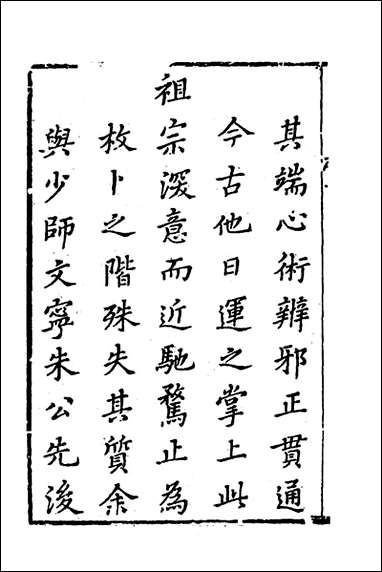 其端心術辨邪正貫通
今古他日運之掌上此
祖宗深意而近馳騖止為
枚卜之階殊失其質余
與少師文寧朱公先後